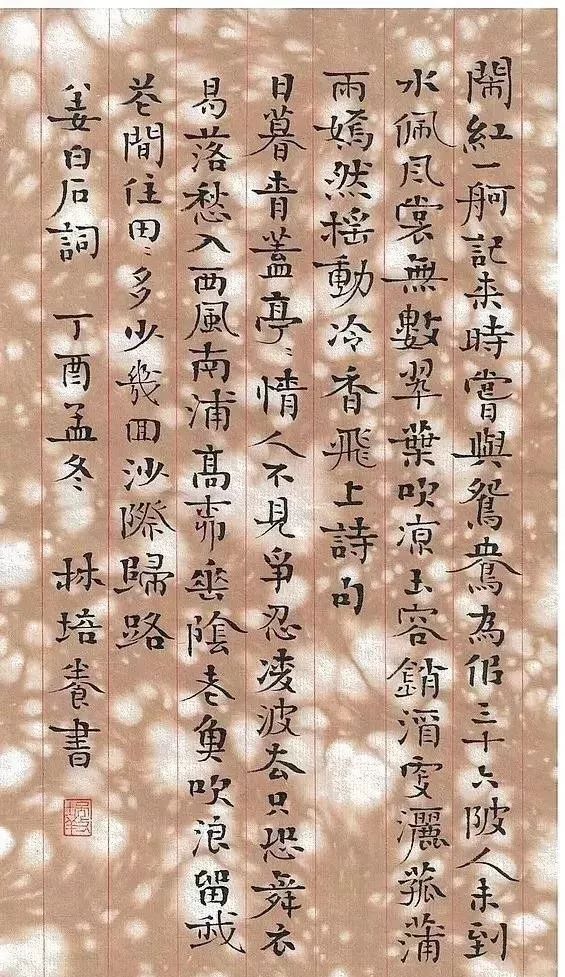 鬧紅一舸記来時嘗與鴛鴦為侶三十六陂人未到
水佩风裳無數翠葉吹凉玉容銷酒更灑菰蒲
雨嫣然搖動冷香飛上詩句
日暮青蓋亭〻情人不見爭忍凌波去只恐舞衣
易落愁入西風南浦高柳垂陰老魚吹浪留我
花間住田〻多少幾回沙際歸路
姜白石詞 丁酉孟冬 林培養書